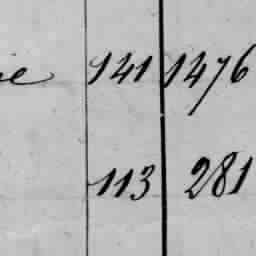 141 1476
113 281